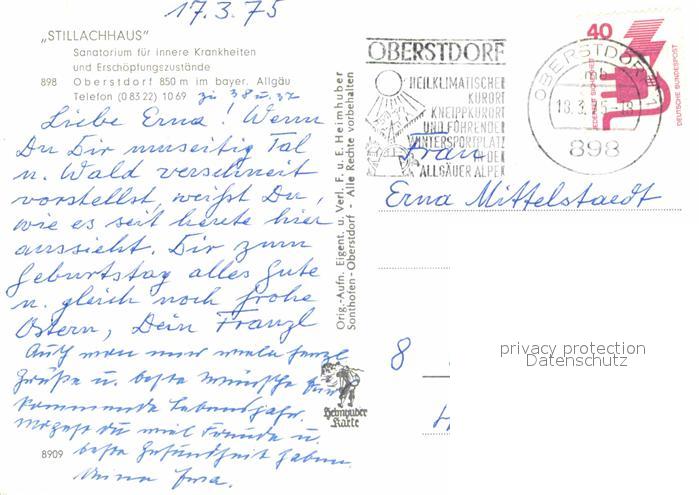 17.3.75
„STILLACHHAUS"
Sanatorium für innere Krankheiten
und Erschöpfungszustände
898 Oberstdorf 850 m im bayer. Allgäu
Telefon (0 83 22) 10 69
Liebe Erna! Wenn
Du Dir
Tal
u. Wald verschneit
vorstellst, weißt Du,
wie es seit heute hier
aussieht. Dir zum
Geburtstag alles Gute
u. gleich noch frohe
Ostern, Dein Franzl
Auch von mir
Grüße u. beste Wünsche
kommende Lebensjahr.
Mögest du viel Freude u.
beste Gesundheit haben.
8909
Orig.-Aufn. Eigent. u. Verl. F. u. E. Heimhuber
Sonthofen-Oberstdorf - Alle Rechte vorbehalten
Heimhuber
Karte
OBERSTDORF
HEILKLIMATISCHER
KURORT
KNEIPPKURORT
UND FÜHRENDER
WINTERSPORTPLATZ
DER
ALLGÄUER ALPEN
OBERSTDORF 1
18.3.75-18
898
40
JEDERZEIT SICHERHEIT
DEUTSCHE BUNDESPOST
Frau
Erna Mittelstaedt
8
privacy protection
Datenschutz